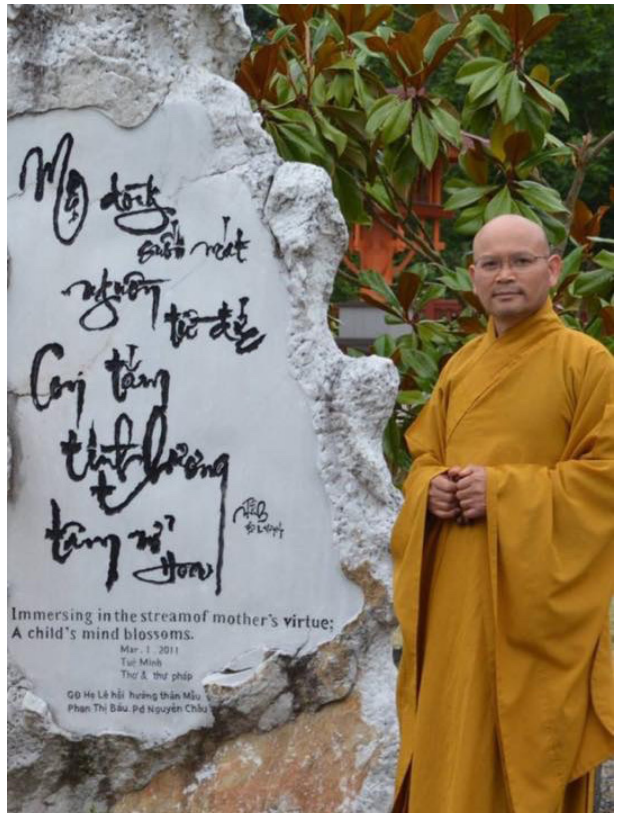 Một dòng
suối mát
nguồn
từ
Con tắm
tình thương
tâm nở
Hoa
Immersing in the streamof mother's virtue;
A child's mind blossoms.
Mar. 1, 2011
Tuệ Minh
Thơ & thư pháp
GĐ Họ Lê hồi hướng thân Mẫu
Phan Thị Báu. Pd Nguyên Châu